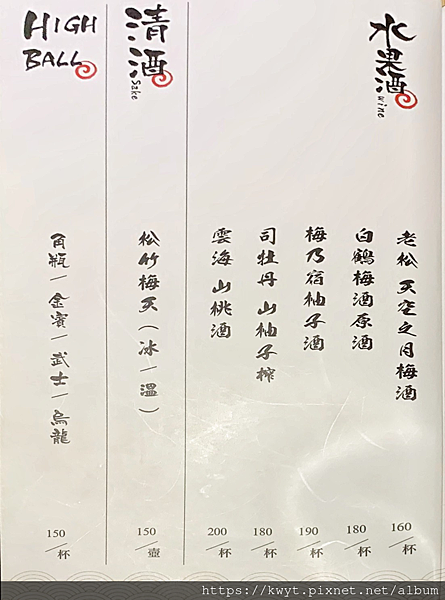 水果酒
wine
老松 天空之月梅酒
160/杯
白鶴梅酒原酒
180/杯
梅乃宿柚子酒
190/杯
司牡丹 山柚子榨
180/杯
雲海 山桃酒
200/杯
清酒
Sake
松竹梅天(冰/溫)
150/壺
HIGH
BALL
角瓶/金賓/武士/烏龍
150/杯
https://kwyt.pixnet.net/album